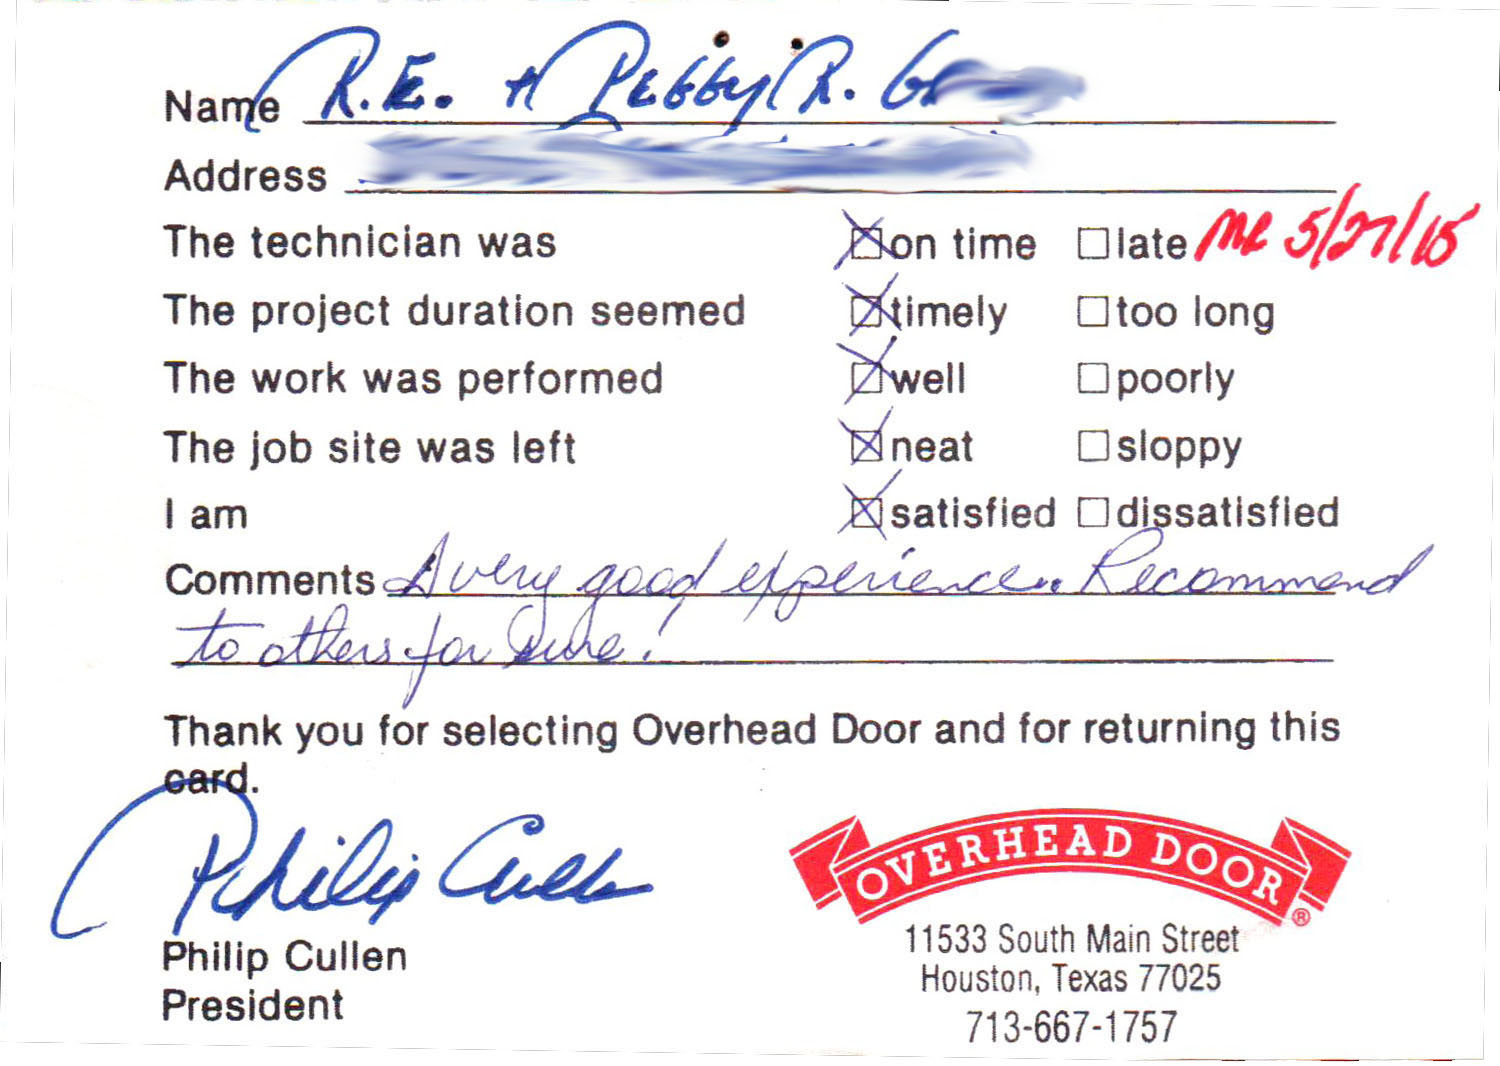 Name R.E. + Peggy R. G
Address
The technician was on time late ML 5/27/15
The project duration seemed timely too long
The work was performed well poorly
The job site was left neat sloppy
I am satisfied dissatisfied
Comments A very good experience. Recommend
to others for sure!
Thank you for selecting Overhead Door and for returning this
card.
Philip Cullen
Philip Cullen
President
OVERHEAD DOOR®
11533 South Main Street
Houston, Texas 77025
713-667-1757